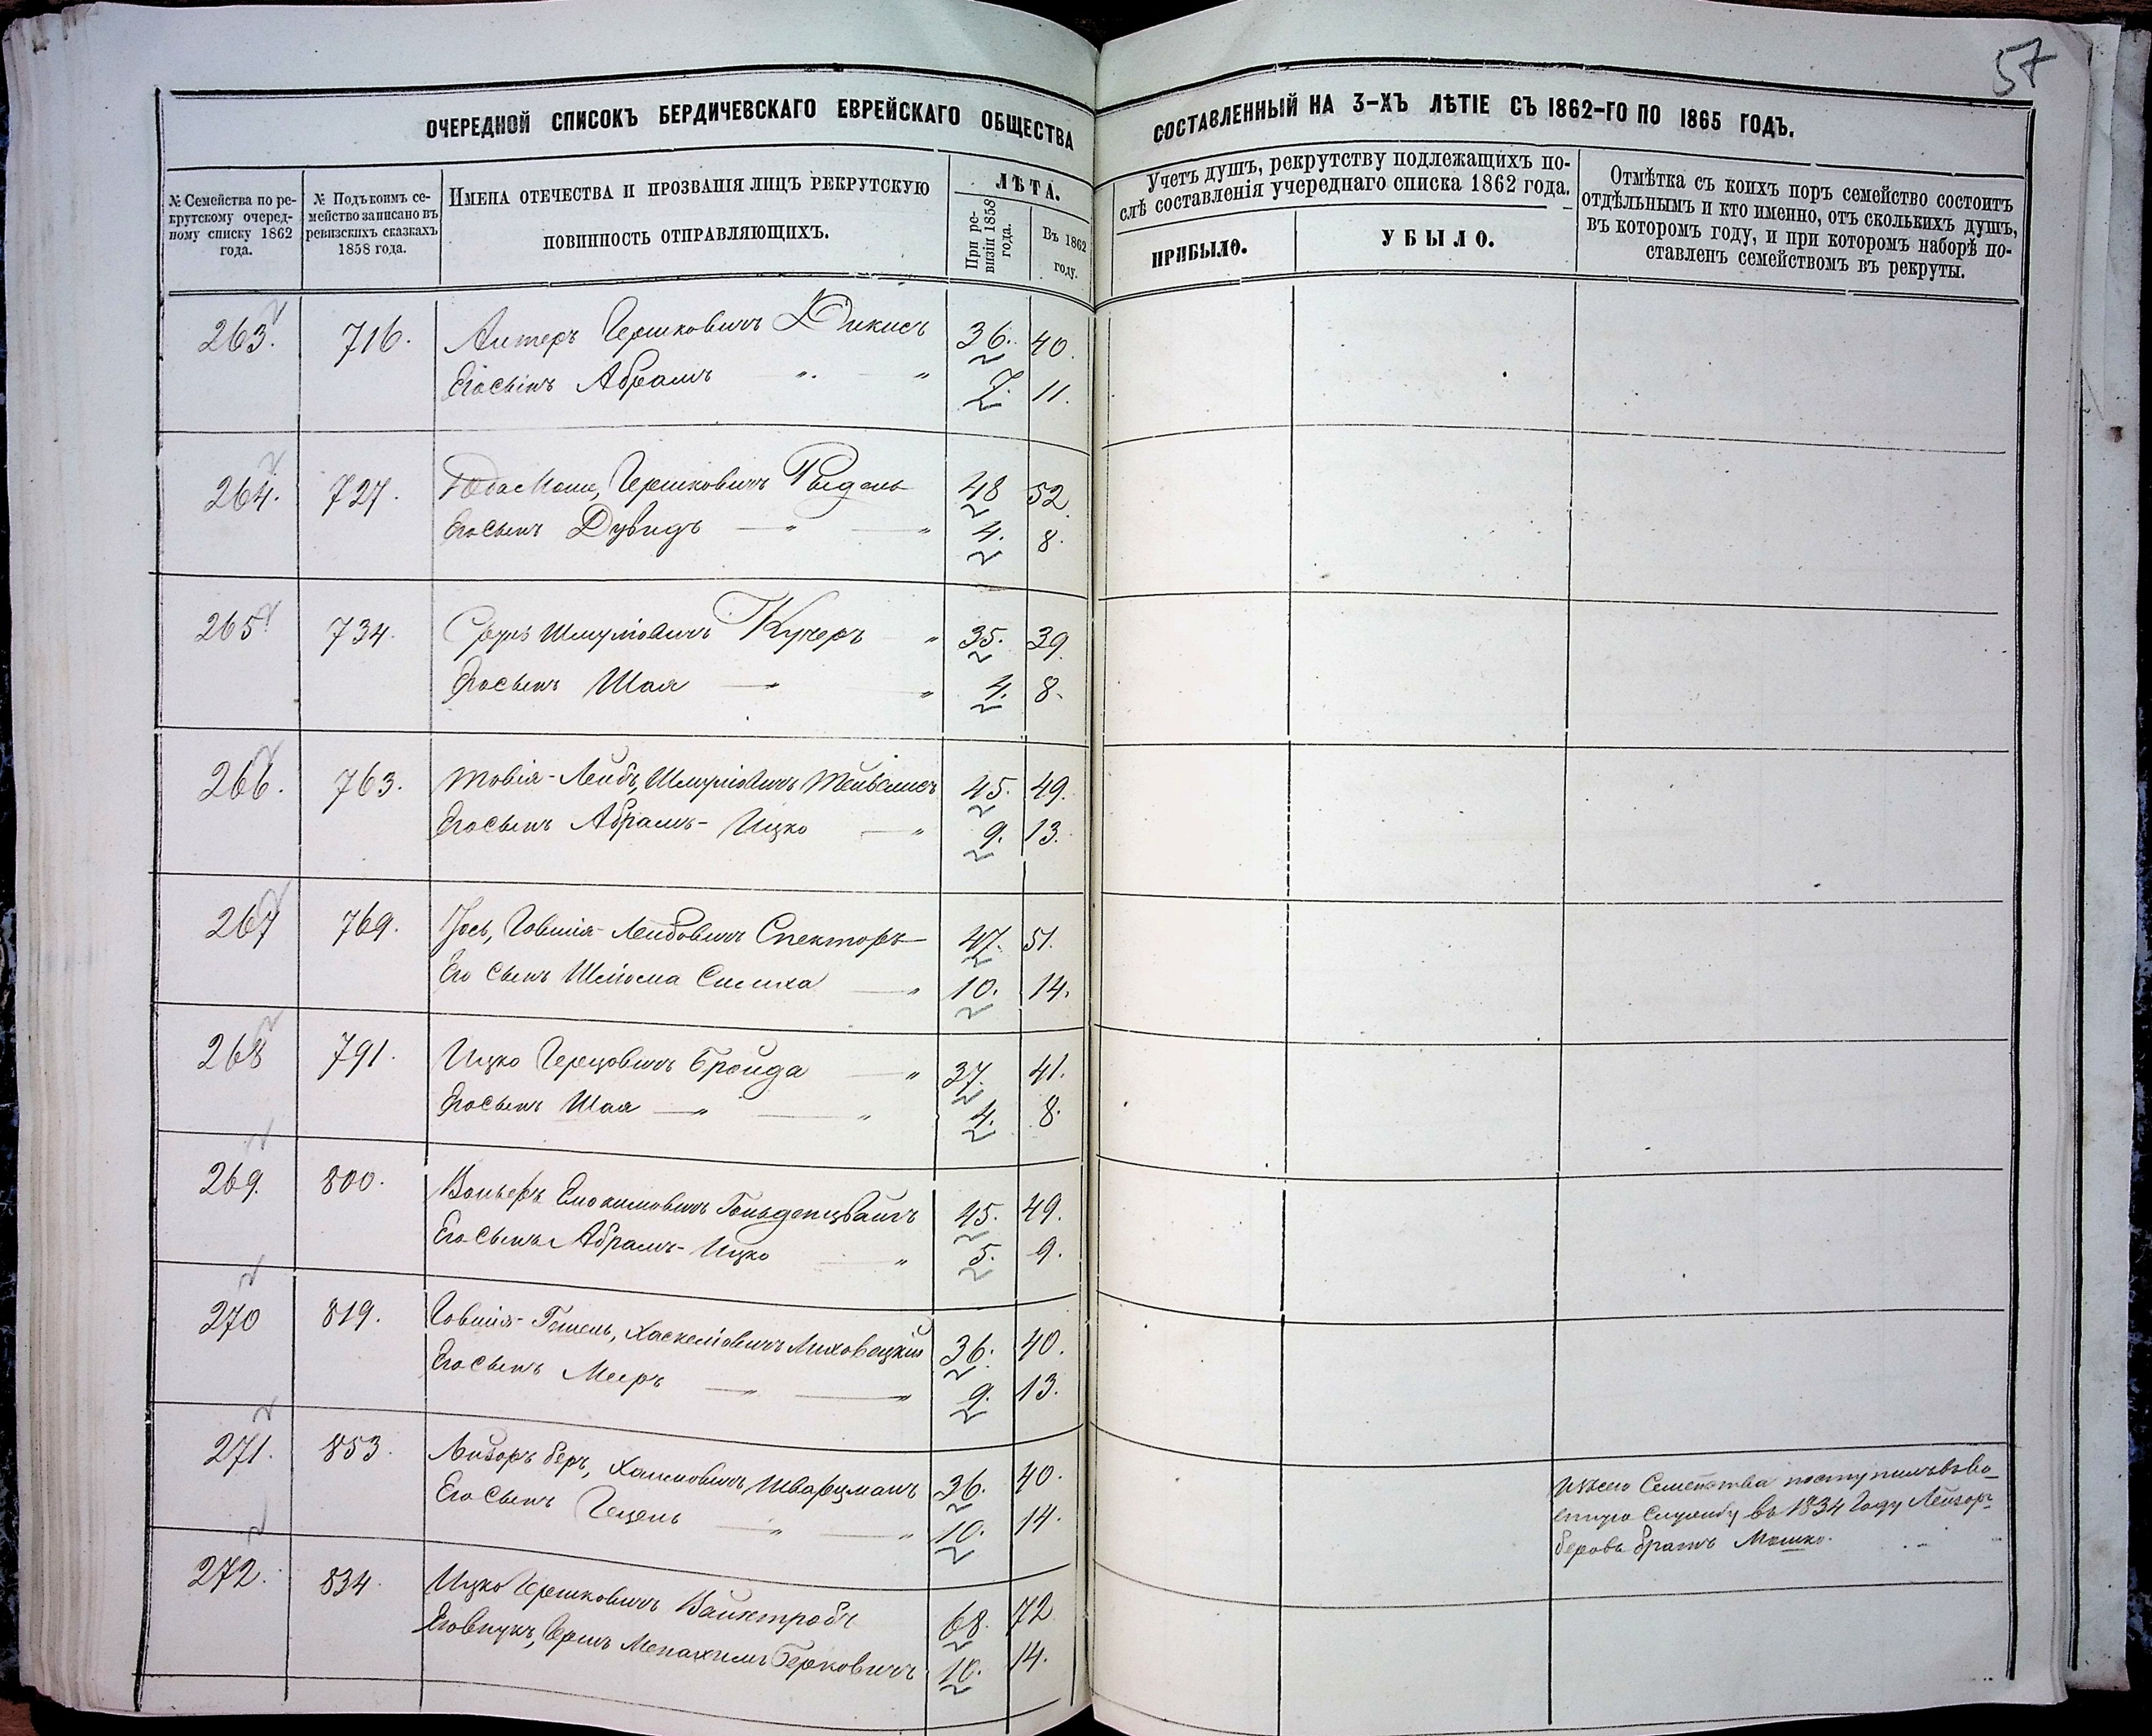 57
ОЧЕРЕДНОЙ СПИСОКЪ БЕРДИЧЕВСКАГО ЕВРЕЙСКАГО ОБЩЕСТВА СОСТАВЛЕННЫЙ НА 3-ХЪ ЛѢТІЕ СЪ 1862-ГО ПО 1865 ГОДЪ.
№ Семейства по ре-
крутскому очеред-
ному списку 1862
года.
№ Подъ коимъ се-
мейство записано въ
ревизскихъ сказкахъ
1858 года.
ИМЕНА ОТЕЧЕСТВА И ПРОЗВАНІЯ ЛИЦЪ РЕКРУТСКУЮ
ПОВИННОСТЬ ОТПРАВЛЯЮЩИХЪ.
ЛѢТА.
При ре-
визіи 1858
года.
Въ 1862
году.
Учетъ душъ, рекрутству подлежащихъ по-
слѣ составленія учереднаго списка 1862 года.
ПРИБЫЛО.
УБЫЛО.
Отмѣтка съ коихъ поръ семейство состоитъ
отдѣльнымъ и кто именно, отъ сколькихъ душъ,
въ котором году, и при котором наборѣ по-
ставленъ семействомъ въ рекруты.
263. 716. Антеръ Гершковичъ Дикисъ 36. 40.
Его сынъ Абрамъ " " 7. 11.
264. 727. Гершковичъ 48 52.
Его сынъ Дувидъ " " 4. 8.
265. 734. Сруль Шмуліовичъ Кучеръ " 35. 39.
Его сынъ Шая " " 4. 8.
266. 763. Товія-Лейбъ, Шмуліовичъ 45. 49.
Его сынъ Абрамъ-Ицко " 9. 13.
267 769. Іось, Говшія-Лейбовичъ Спекторъ 47. 51.
Его сынъ Шліома Симха " 10. 14.
268 791. Ицко Герцовичъ Бройда " 37. 41.
Его сынъ Шая " " 4. 8.
269. 800. Вольфъ Гольденцвайгъ 45. 49.
Его сынъ Абрамъ-Ицко " 5. 9.
270 819. Говшія-Гешель, Хаскеліовичъ Маховецкій 36. 40.
Его сынъ Мееръ " " 9. 13.
271. 853. Лейзоръ Беръ, Хаимовичъ Шварцманъ 36. 40.
Его сынъ Гецель " " 10. 14.
Изъ сего Семейства поступилъ въ во-
енную Службу въ 1834 Году Лейзоръ
Беровъ братъ Мошко.
272. 834. Ицко Гершковичъ Вайнтробъ 68. 72
Его внукъ, Гершъ Менахимъ Берковичъ 10. 14.